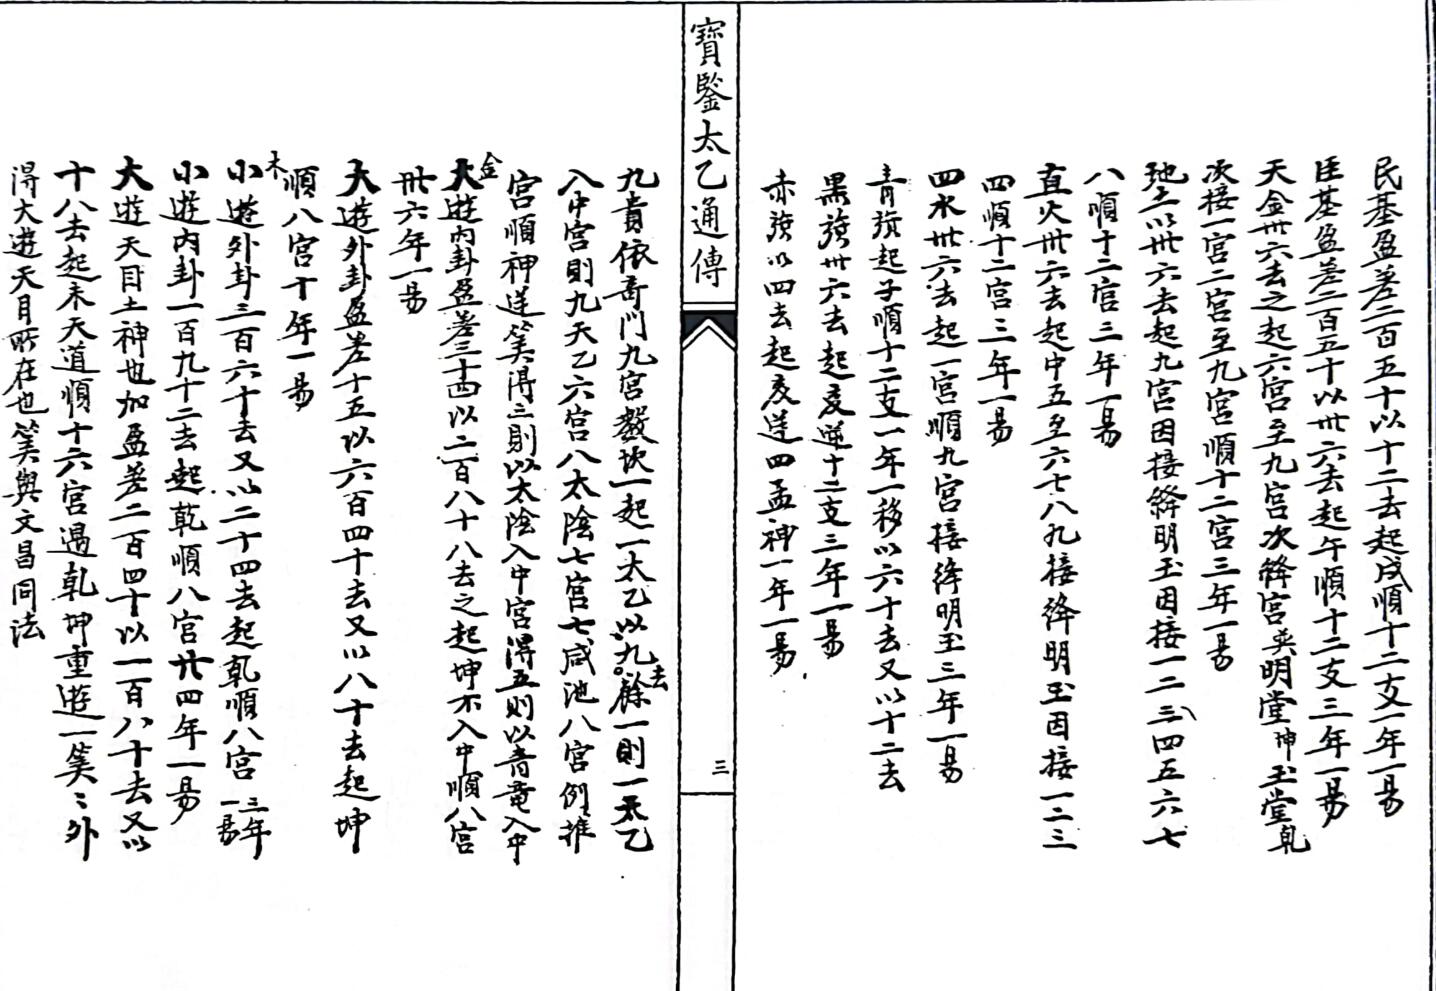 民基盈差二百五十以十二去起戌順十二支一年一易
臣基盈差二百五十以卅六去起午順十二支三年一易
天金卅六去之起六宮至九宮次絳宮与明堂坤玉堂乾
次接一宮二宮至九宮順十二宮三年一易
地土以卅六去起九宮因接絳明玉因接一二三四五六七
八順十二宮三年一易
直火卅六去起中五至六七八九接絳明玉因接一二三
四順十二宮三年一易
四水卅六去起一宮順九宮接絳明玉三年一易
青 起子順十二支一年一移以六十去又以十二去
黑 卅六去起亥逆十二支三年一易
赤 以四去起亥逆四孟神一年一易
寶鑒太乙通傳
三
九貴依奇門九宮數坎一起一太乙以九去餘一則一太乙
入中宮則九天乙六宮八太陰七宮七咸池八宮例推
宮順神逆筭得三則以太陰入中宮得五則以青竜入中
金
大遊內卦盈差三十四以二百八十八去之起坤不入中順八宮
卅六年一易
大遊外卦盈差十五以六百四十去又以八十去起坤
順八宮十年一易
木
小遊外卦三百六十去又以二十四去起乾順八宮三年一易
小遊內卦一百九十二去起乾順八宮廿四年一易
大遊天目土神也加盈差二百四十以一百八十去又以
十八去起未天道順十六宮遇乾坤重遊一筭〻外
得大遊天目所在也筭與文昌同法